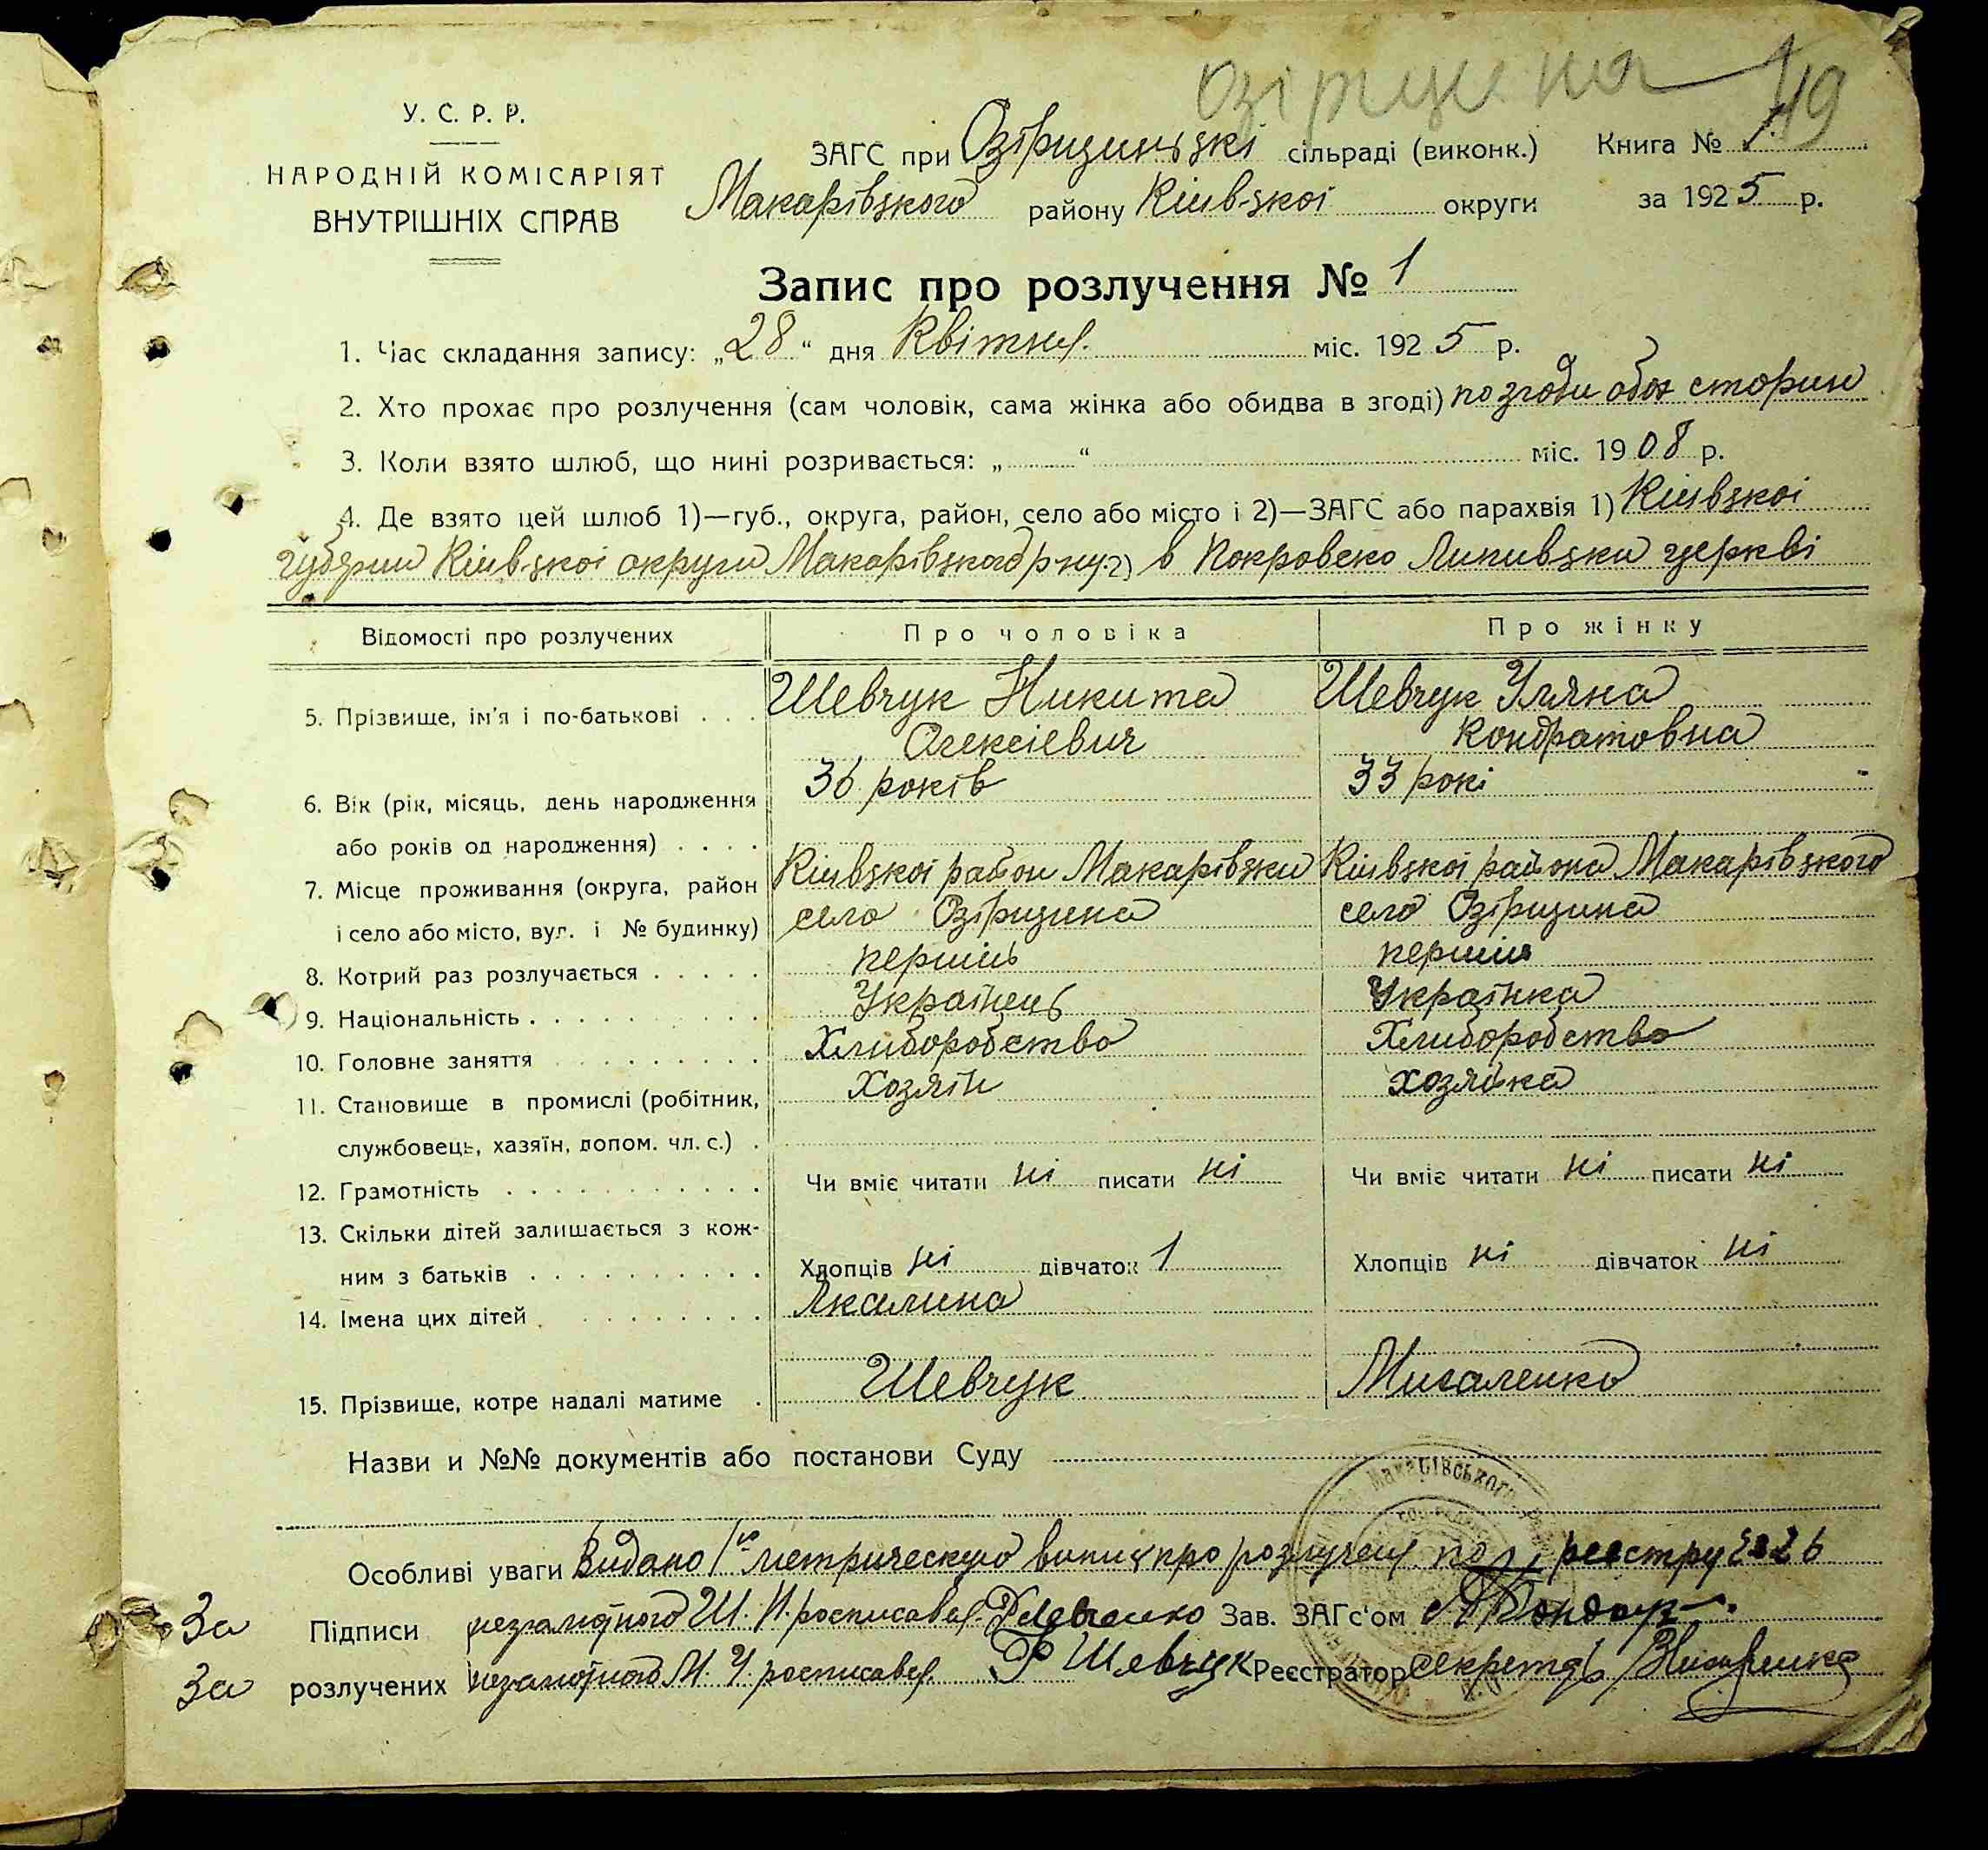 Озірщина 119
У. С. Р. Р.
НАРОДНІЙ КОМІСАРІЯТ
ВНУТРІШНІХ СПРАВ
ЗАГС при Озірщиньзкі сільраді (виконк.) Книга № 1
Макарівзкого району Київ-зкоі округи за 1925 р.
Запис про розлучення № 1
1. Час складання запису: „28“ дня Квітня міс. 1925 р.
2. Хто прохає про розлучення (сам чоловік, сама жінка або обидва в згоді) по згоди обох сторин
3. Коли взято шлюб, що нині розривається: „ “ міс. 1908 р.
4. Де взято цей шлюб 1)—губ., округа, район, село або місто і 2)—ЗАГС або парахвія 1) Київзкоі
губернии Київ-зкоі округи Макарівзкого р-ну 2) в Покровско Липивзки церкві
Відомості про розлучених Про чоловіка Про жінку
5. Прізвище, ім'я і по-батькові . . . Шевчук Никита Шевчук Уляна
Олексіевич Кондратовна
6. Вік (рік, місяць, день народження 36 років 33 рокі
або років од народження) . . . .
7. Місце проживання (округа, район Київзкоі район Макарівзки Київзкоі района Макарівзкого
і село або місто, вул. і № будинку) село Озірщина село Озірщина
8. Котрий раз розлучається . . . . . перший перший
9. Національність . . . . . . . . . Українець Українка
10. Головне заняття . . . . . . . . . Хлиборобство Хлиборобство
11. Становище в промислі (робітник, Хозяїн хозяйка
службовець, хазяїн, допом. чл. с.) .
12. Грамотність . . . . . . . . . . . Чи вміє читати ні писати ні Чи вміє читати ні писати ні
13. Скільки дітей залишається з кож-
ним з батьків . . . . . . . . . . Хлопців ні дівчаток 1 Хлопців ні дівчаток ні
14. Імена цих дітей . . . . . . . . . Акилина
15. Прізвище, котре надалі матиме . Шевчук Мисаленко
Назви и №№ документів або постанови Суду
Особливі уваги Видано 1 метрическую випис про розлучен по реестру
За Підписи незамотного Ш. Н. росписався Зав. ЗАГс'ом А Бондар
За розлучених незамотного М. У. росписався Р Шевчук Реєстратор секретарь
Макарівського